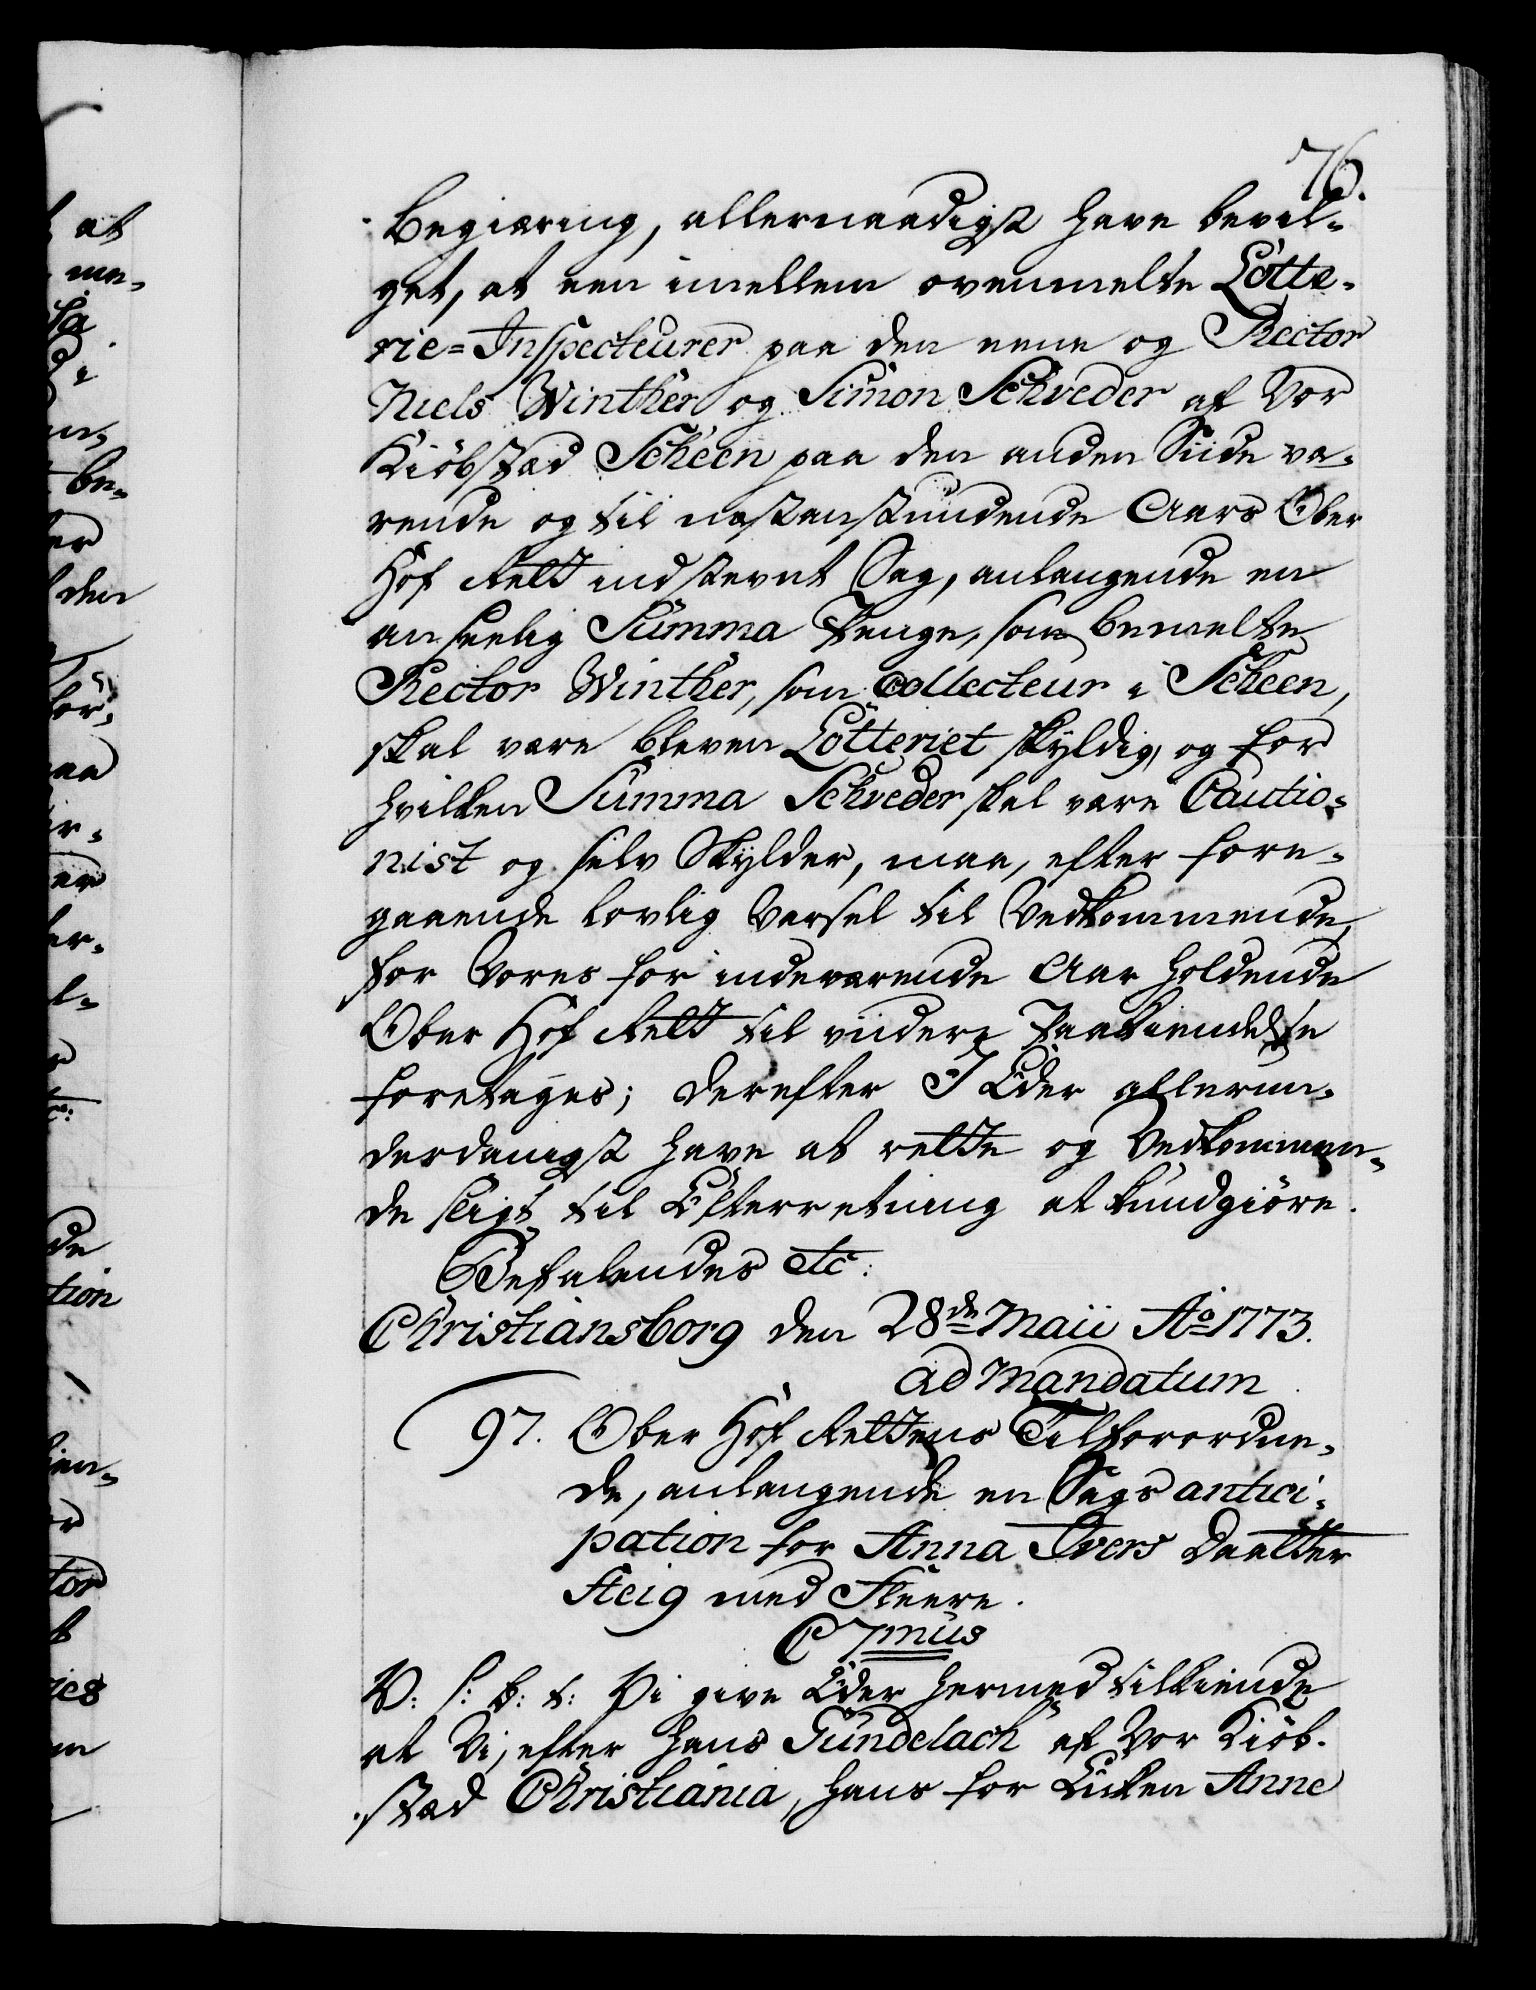 76.
Begiæring, allernaadigst have bevil-
get, at een imellem ovenmelte Lotte-
rie=Inspecteurer paa den eene og Rector
Niels Winther og Simon Schveder af Vor
Kiöbstæd Scheen paa den anden Siide væ-
rende og til næstanstundende Aars Ober
Hof Rett indstævnt Sag, anlangende en
anseelig Summa Penge, som bemelte
Rector Winther, som Collecteur i Scheen,
skal være bleven Lotteriet skyldig, og for
hvilken Summa Schveder skal være Cautio-
nist og selv Skylder, maa, efter fore-
gaaende lovlig Varsel til Vedkommende,
for Vores for indeværende Aar holdende
Ober Hof Rett til viidere Paakiendelse
foretages; derefter I Eder allerun-
derdanigst have at rette og Vedkommen-
de sligt til Efterretning at kundgiöre.
Befalendes etc:
Christiansborg den 28de Maii Ao 1773.
ad Mandatum
97. Ober Hof Rettens Tilforordne-
de, anlangende en Sags antici-
pation for Anna Ivers Daatter
Steig med Fleere.
C 7mus
V: S: G: T: Vi give Eder hermed tilkiende
at Vi, efter Hans Gundelach af Vor Kiöb-
stæd Christiania, hans for Enken Anne